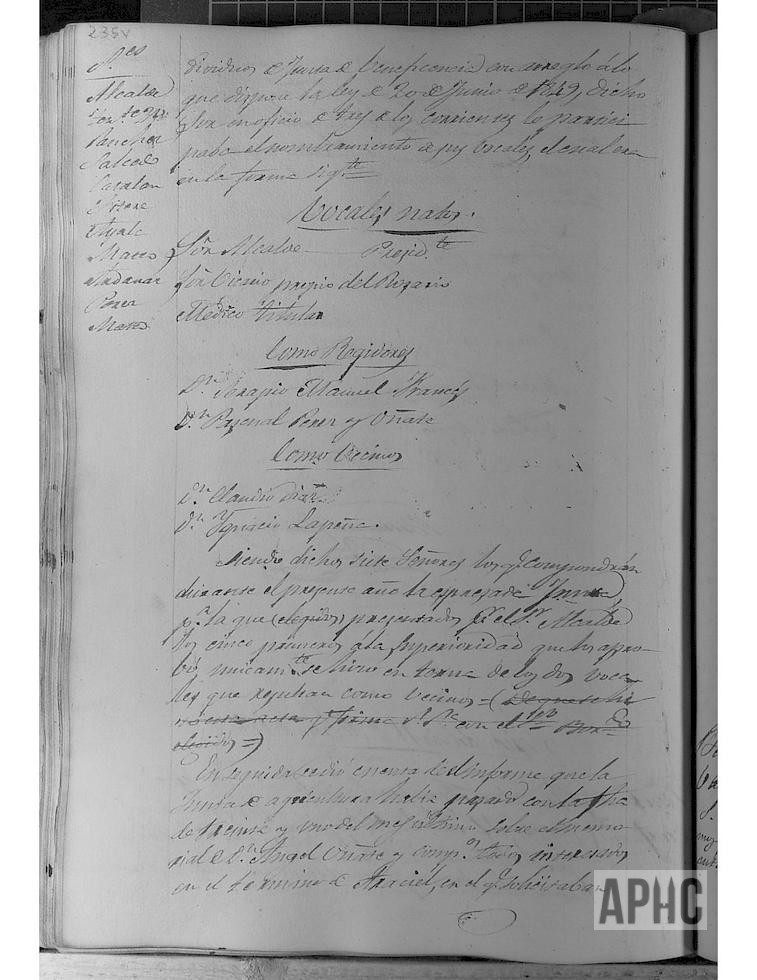 235v
S.res
Alcalde
Ten.te 2º
Sanchez
Salcedo
Catalan
Ayala
Marco
Andanar
Perez
Marco
dividuos de Junta de beneficencia con arreglo á lo
que dispone la ley de 20 de Junio de 1849, dicho
Sor en oficio de tres de los corrientes le partici
paba el nombramiento de sus vocales, el cual era
en la forma sig.te
Vocales natos.
Sôr Alcalde Presid.te
Sôr Vicario propio del Rosario
Médico titular
Como Regidores
D.n Serapio Manuel Francés
D.n Pascual Perez y Oñate
Como Vecinos
D.n Claudio Diaz
D.n Ygnacio Lapeña.
Siendo dichos siete Señores los q.e compondrán
durante el presente año la espresada Junta,
p.a la que (elegidos) presentados p.r el S.r Alcalde
los cinco primeros á la Superioridad que los apro-
bó, unicam.te se hizo en terna de los dos voca-
les que resultan como vecinos = (De que se hi
zo esta acta y firma S.S.a con el
elegidos =)
En seguida se dió cuenta del informe que la
Junta de agricultura había pasado con la fha
de treinta y uno del mes último sobre el memo-
rial de D.n Angel Oñate y comp.s todos interesados
en el término de Araciel, en el q.e solicitaban
APHC